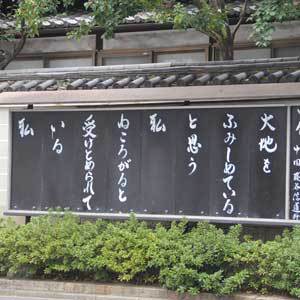 大地を
ふみしめている
と思う
私
ねころがると
受けとめられて
いる
私